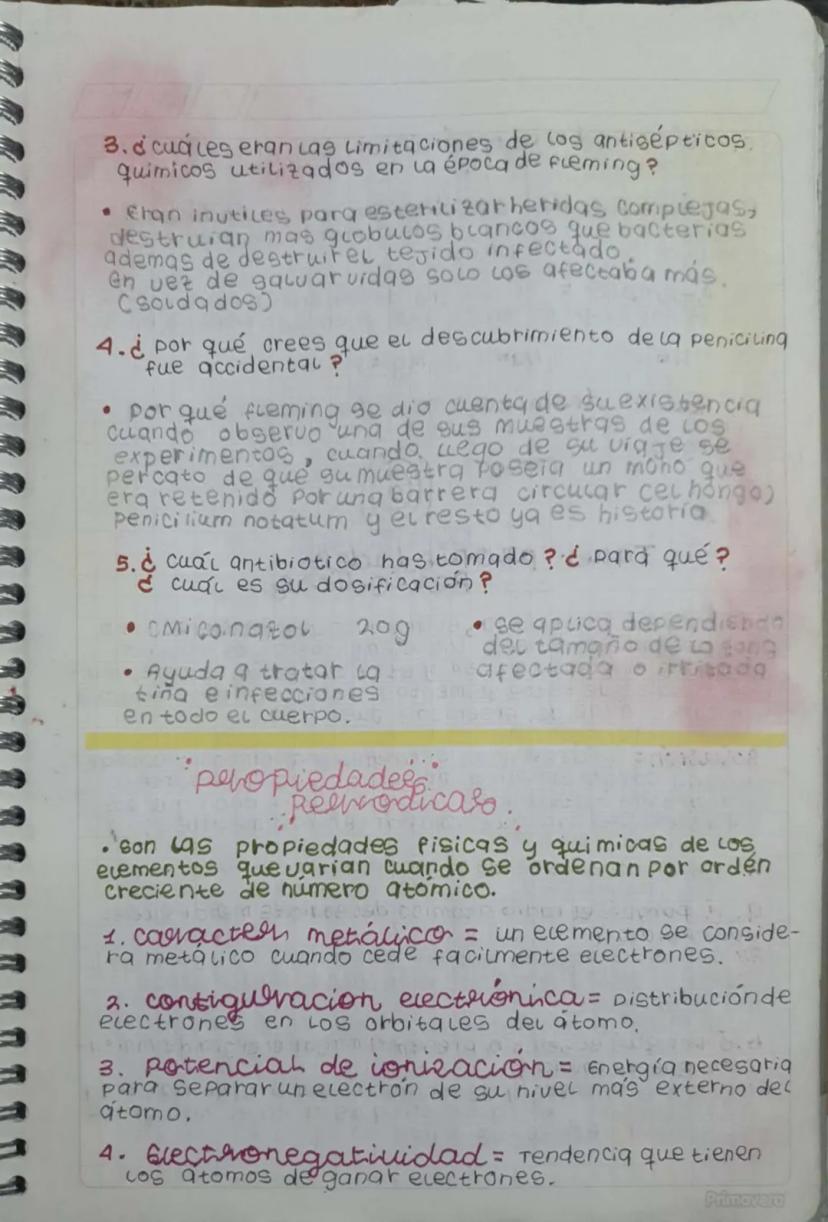 3. ¿cuáles eran las limitaciones de los antisépticos
quimicos utilizados en la época de fleming?
• eran inutiles para esterilizar heridas complejas,
destruian mas globulos blancos que bacterias
ademas de destruir el tejido infectado.
en vez de salvar vidas solo los afectaba más.
(soldados)
4. ¿por qué crees que el descubrimiento de la penicilina
fue accidental?
• por qué fleming se dio cuenta de su existencia
cuando observo una de sus muestras de los
experimentos, cuando llego de su viaje se
percato de que su muestra poseia un moho que
era retenido por una barrera circular (el hongo)
penicilium notatum y el resto ya es historia
5. ¿cuál antibiotico has tomado? ¿para qué?
¿cual es su dosificación?
• 20g
• Ayuda a tratar la
tiña e infecciones
en todo el cuerpo.
• se aplica dependiendo
del tamaño de la zona
afectada o irritada
propiedades
periodicas.
• son las propiedades fisicas y quimicas de los
elementos que varian cuando se ordenan por ordén
creciente de número atómico.
1. caracter metálico = un elemento se conside-
ra metálico cuando cede facilmente electrones.
2. configuracion electrónica = Distribución de
electrones en los orbitales del átomo.
3. Potencial de ionización = energía necesaria
para separar un electrón de su nivel más externo del
átomo.
4. Electronegatividad = Tendencia que tienen
los atomos de ganar electrones.
Primavera